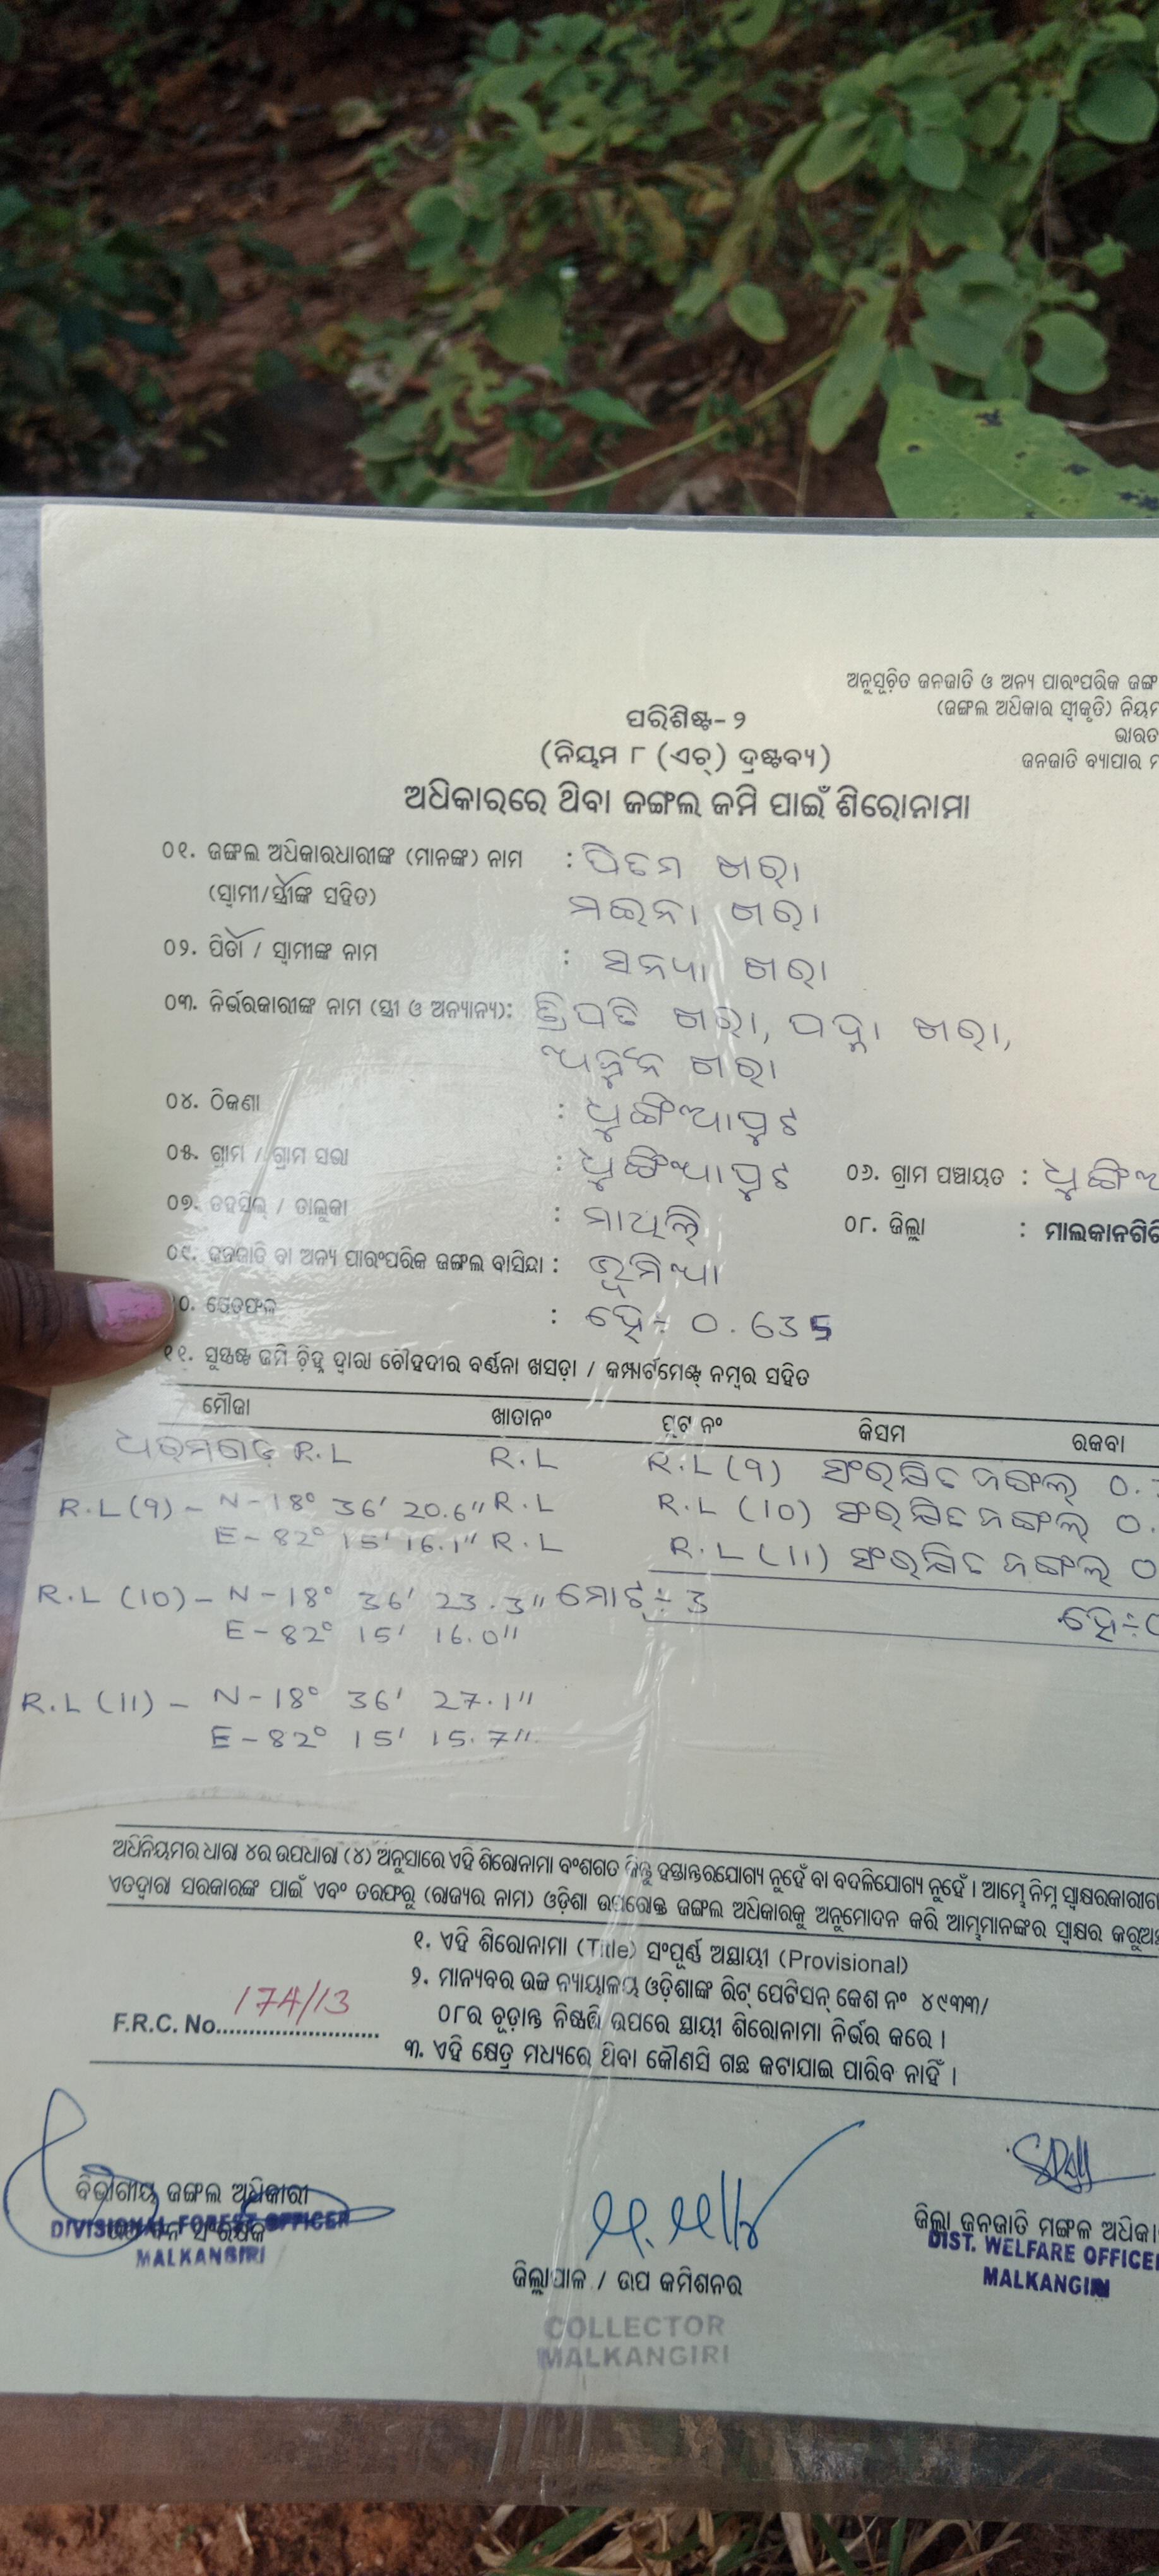 ଅନୁସୂଚିତ ଜନଜାତି ଓ ଅନ୍ୟ ପାରଂପରିକ ଜଙ୍ଗ
(ଜଙ୍ଗଲ ଅଧିକାର ସ୍ୱୀକୃତି) ନିୟମ
ଭାରତ
ଜନଜାତି ବ୍ୟାପାର ମ
ପରିଶିଷ୍ଟ- ୨
(ନିୟମ ୮ (ଏଚ୍) ଦ୍ରଷ୍ଟବ୍ୟ)
ଅଧିକାରରେ ଥିବା ଜଙ୍ଗଲ ଜମି ପାଇଁ ଶିରୋନାମା
୦୧. ଜଙ୍ଗଲ ଅଧିକାରଧାରୀଙ୍କ (ମାନଙ୍କ) ନାମ : ପିତମ ଖରା
(ସ୍ୱାମୀ/ସ୍ତ୍ରୀଙ୍କ ସହିତ) ମଇନା ଖରା
୦୨. ପିତା / ସ୍ୱାମୀଙ୍କ ନାମ : ସନ୍ୟା ଖରା
୦୩. ନିର୍ଭରକାରୀଙ୍କ ନାମ (ସ୍ତ୍ରୀ ଓ ଅନ୍ୟାନ୍ୟ): ଖରା, ଖରା,
ଖରା
୦୪. ଠିକଣା : ଧୁଙ୍ଗିଆପୁଟ
୦୫. ଗ୍ରାମ / ଗ୍ରାମ ସଭା : ଧୁଙ୍ଗିଆପୁଟ ୦୬. ଗ୍ରାମ ପଞ୍ଚାୟତ : ଧୁଙ୍ଗିଆ
୦୭. ତହସିଲ୍ / ତାଲୁକା : ମାଥିଲି ୦୮. ଜିଲ୍ଲା : ମାଲକାନଗିରି
୦୯. ଜନଜାତି ବା ଅନ୍ୟ ପାରଂପରିକ ଜଙ୍ଗଲ ବାସିନ୍ଦା : ଭୂମିଆ
୧୦. କ୍ଷେତ୍ରଫଳ : ହେ÷ 0.635
୧୧. ସୁସ୍ପଷ୍ଟ ଜମି ଚିହ୍ନ ଦ୍ୱାରା ଚୌହଦୀର ବର୍ଣ୍ଣନା ଖସଡ଼ା / କମ୍ପାର୍ଟମେଣ୍ଟ୍ ନମ୍ବର ସହିତ
ମୌଜା ଖାତାନଂ ପ୍ଲଟ ନଂ କିସମ ରକବା
ଧରମଗଡ଼ R.L R.L R.L (9) ସଂରକ୍ଷିତ ଜଙ୍ଗଲ୍ 0.
R.L (9) - N-18° 36' 20.6" R.L R.L (10) ସଂରକ୍ଷିତ ଜଙ୍ଗଲ୍ 0.
E-82° 15' 16.1" R.L R.L (11) ସଂରକ୍ଷିତ ଜଙ୍ଗଲ୍ 0
R.L (10) - N-18° 36' 23.3" ମୋଟ÷ 3 ହେ÷0
E-82° 15' 16.0"
R.L (11) - N-18° 36' 27.1"
E-82° 15' 15.7"
ଅଧିନିୟମର ଧାରା ୪ର ଉପଧାରା (୪) ଅନୁସାରେ ଏହି ଶିରୋନାମା ବଂଶଗତ କିନ୍ତୁ ହସ୍ତାନ୍ତରଯୋଗ୍ୟ ନୁହେଁ ବା ବଦଳିଯୋଗ୍ୟ ନୁହେଁ । ଆମ୍ଭେ ନିମ୍ନ ସ୍ୱାକ୍ଷରକାରୀଗ
ଏତଦ୍ୱାରା ସରକାରଙ୍କ ପାଇଁ ଏବଂ ତରଫରୁ (ରାଜ୍ୟର ନାମ) ଓଡ଼ିଶା ଉପରୋକ୍ତ ଜଙ୍ଗଲ ଅଧିକାରକୁ ଅନୁମୋଦନ କରି ଆମ୍ଭମାନଙ୍କର ସ୍ୱାକ୍ଷର କରୁଅ
୧. ଏହି ଶିରୋନାମା (Title) ସଂପୂର୍ଣ୍ଣ ଅସ୍ଥାୟୀ (Provisional)
୨. ମାନ୍ୟବର ଉଚ୍ଚ ନ୍ୟାୟାଳୟ ଓଡ଼ିଶାଙ୍କ ରିଟ୍ ପେଟିସନ୍ କେଶ ନଂ ୪୯୩୩/
୦୮ର ଚୂଡ଼ାନ୍ତ ନିଷ୍ପତ୍ତି ଉପରେ ସ୍ଥାୟୀ ଶିରୋନାମା ନିର୍ଭର କରେ ।
୩. ଏହି କ୍ଷେତ୍ର ମଧ୍ୟରେ ଥିବା କୌଣସି ଗଛ କଟାଯାଇ ପାରିବ ନାହିଁ ।
F.R.C. No. 174/13
ବିଭାଗୀୟ ଜଙ୍ଗଲ ଅଧିକାରୀ
DIVISIONAL FOREST OFFICER
MALKANGIRI
ଜିଲ୍ଲାପାଳ / ଉପ କମିଶନର
COLLECTOR
MALKANGIRI
ଜିଲ୍ଲା ଜନଜାତି ମଙ୍ଗଳ ଅଧିକା
DIST. WELFARE OFFICER
MALKANGIRI